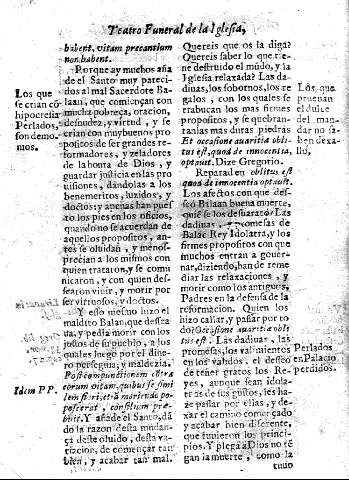 Teatro Funeral de la Iglesia,
habent, vitam precantium
non habent.
Porque ay muchos, dize
el Santo muy pareci-
dos al mal Sacerdote Ba-
laan, que comiençan con
mucha pobreza, oracion,
desnudez, y virtud, y se
crian con muy buenos pro
positos de ser grandes re-
formadores, y zeladores
de la honra de Dios, y
guardar justicia en las pro
uisiones, dandolas a los
benemeritos, luzidos, y
doctos; y apenas han pues
to los pies en los oficios,
quando no se acuerdan de
aquellos propositos, an-
tes se oluidan, y menos-
precian a los mismos con
quien trataron, y se comu
nicaron, y con quien des-
searon viuir, y morir por
ser virtuosos, y doctos.
Y esso mesmo hizo el
maldito Balan, que dessea
ua, y pedia morir con los
justos de su pueblo, a los
quales luego por el dine-
ro perseguia, y maldezia.
Post compunctionem contra
eorum vitam, quibus se simi
lem fieri, etiã moriendo po-
poscerat, consilium præ-
buit. Y añade el Santo, dã
do la razon desta mudan-
ça deste oluido, desta va-
riacion, de começar tan
bien, y acabar tan mal.
Los que
se crian cõ
hipocresia
Perlados,
son demo-
nios.
Idem PP.
Quereis que os la diga?
Quereis saber lo que tie-
ne destruido el mũdo, y la
Iglesia relaxada? Las da-
diuas, los sobornos, los re
galos, con los quales se
trabucan los mas firmes
propositos, y se quebran-
tan las mas duras piedras
Et occasione auaritiæ oblitus
est, quod de innocentia,
optauit. Dize Gregorio.
Reparad en oblitus est
quod de innocentia optauit.
Los afectos con que des-
seó Bilaan buena muerte,
quiē se los desuarató? Las
dadiuas, y promesas de
Balac Rey Idolatra, y los
firmes propositos con que
muchos entran a gouer-
nar, diziendo, han de reme
diar las relaxaciones, y
morir como los antiguos
Padres en la defensa de la
reformacion. Quien los
hizo callar, y passar por to
do? Occasione auaritiæ obli
tus est. Las dadiuas, las
promesas, los valimientos
en los validos, el desseo
de tener gratos los Re-
yes, aunque sean idola-
tras de sus gustos, les ha-
ze passar por ellas, y de-
xar el camino començado
y acabar bien diferente,
que tuuieron los princi-
pios. Y plega a Dios no tē
gan la muerte, como la
tuuo
Los, que
prueuan
el dulce
del man-
dar no sa-
ben dexa-
llo,
Perlados
en Palacio
perdidos.